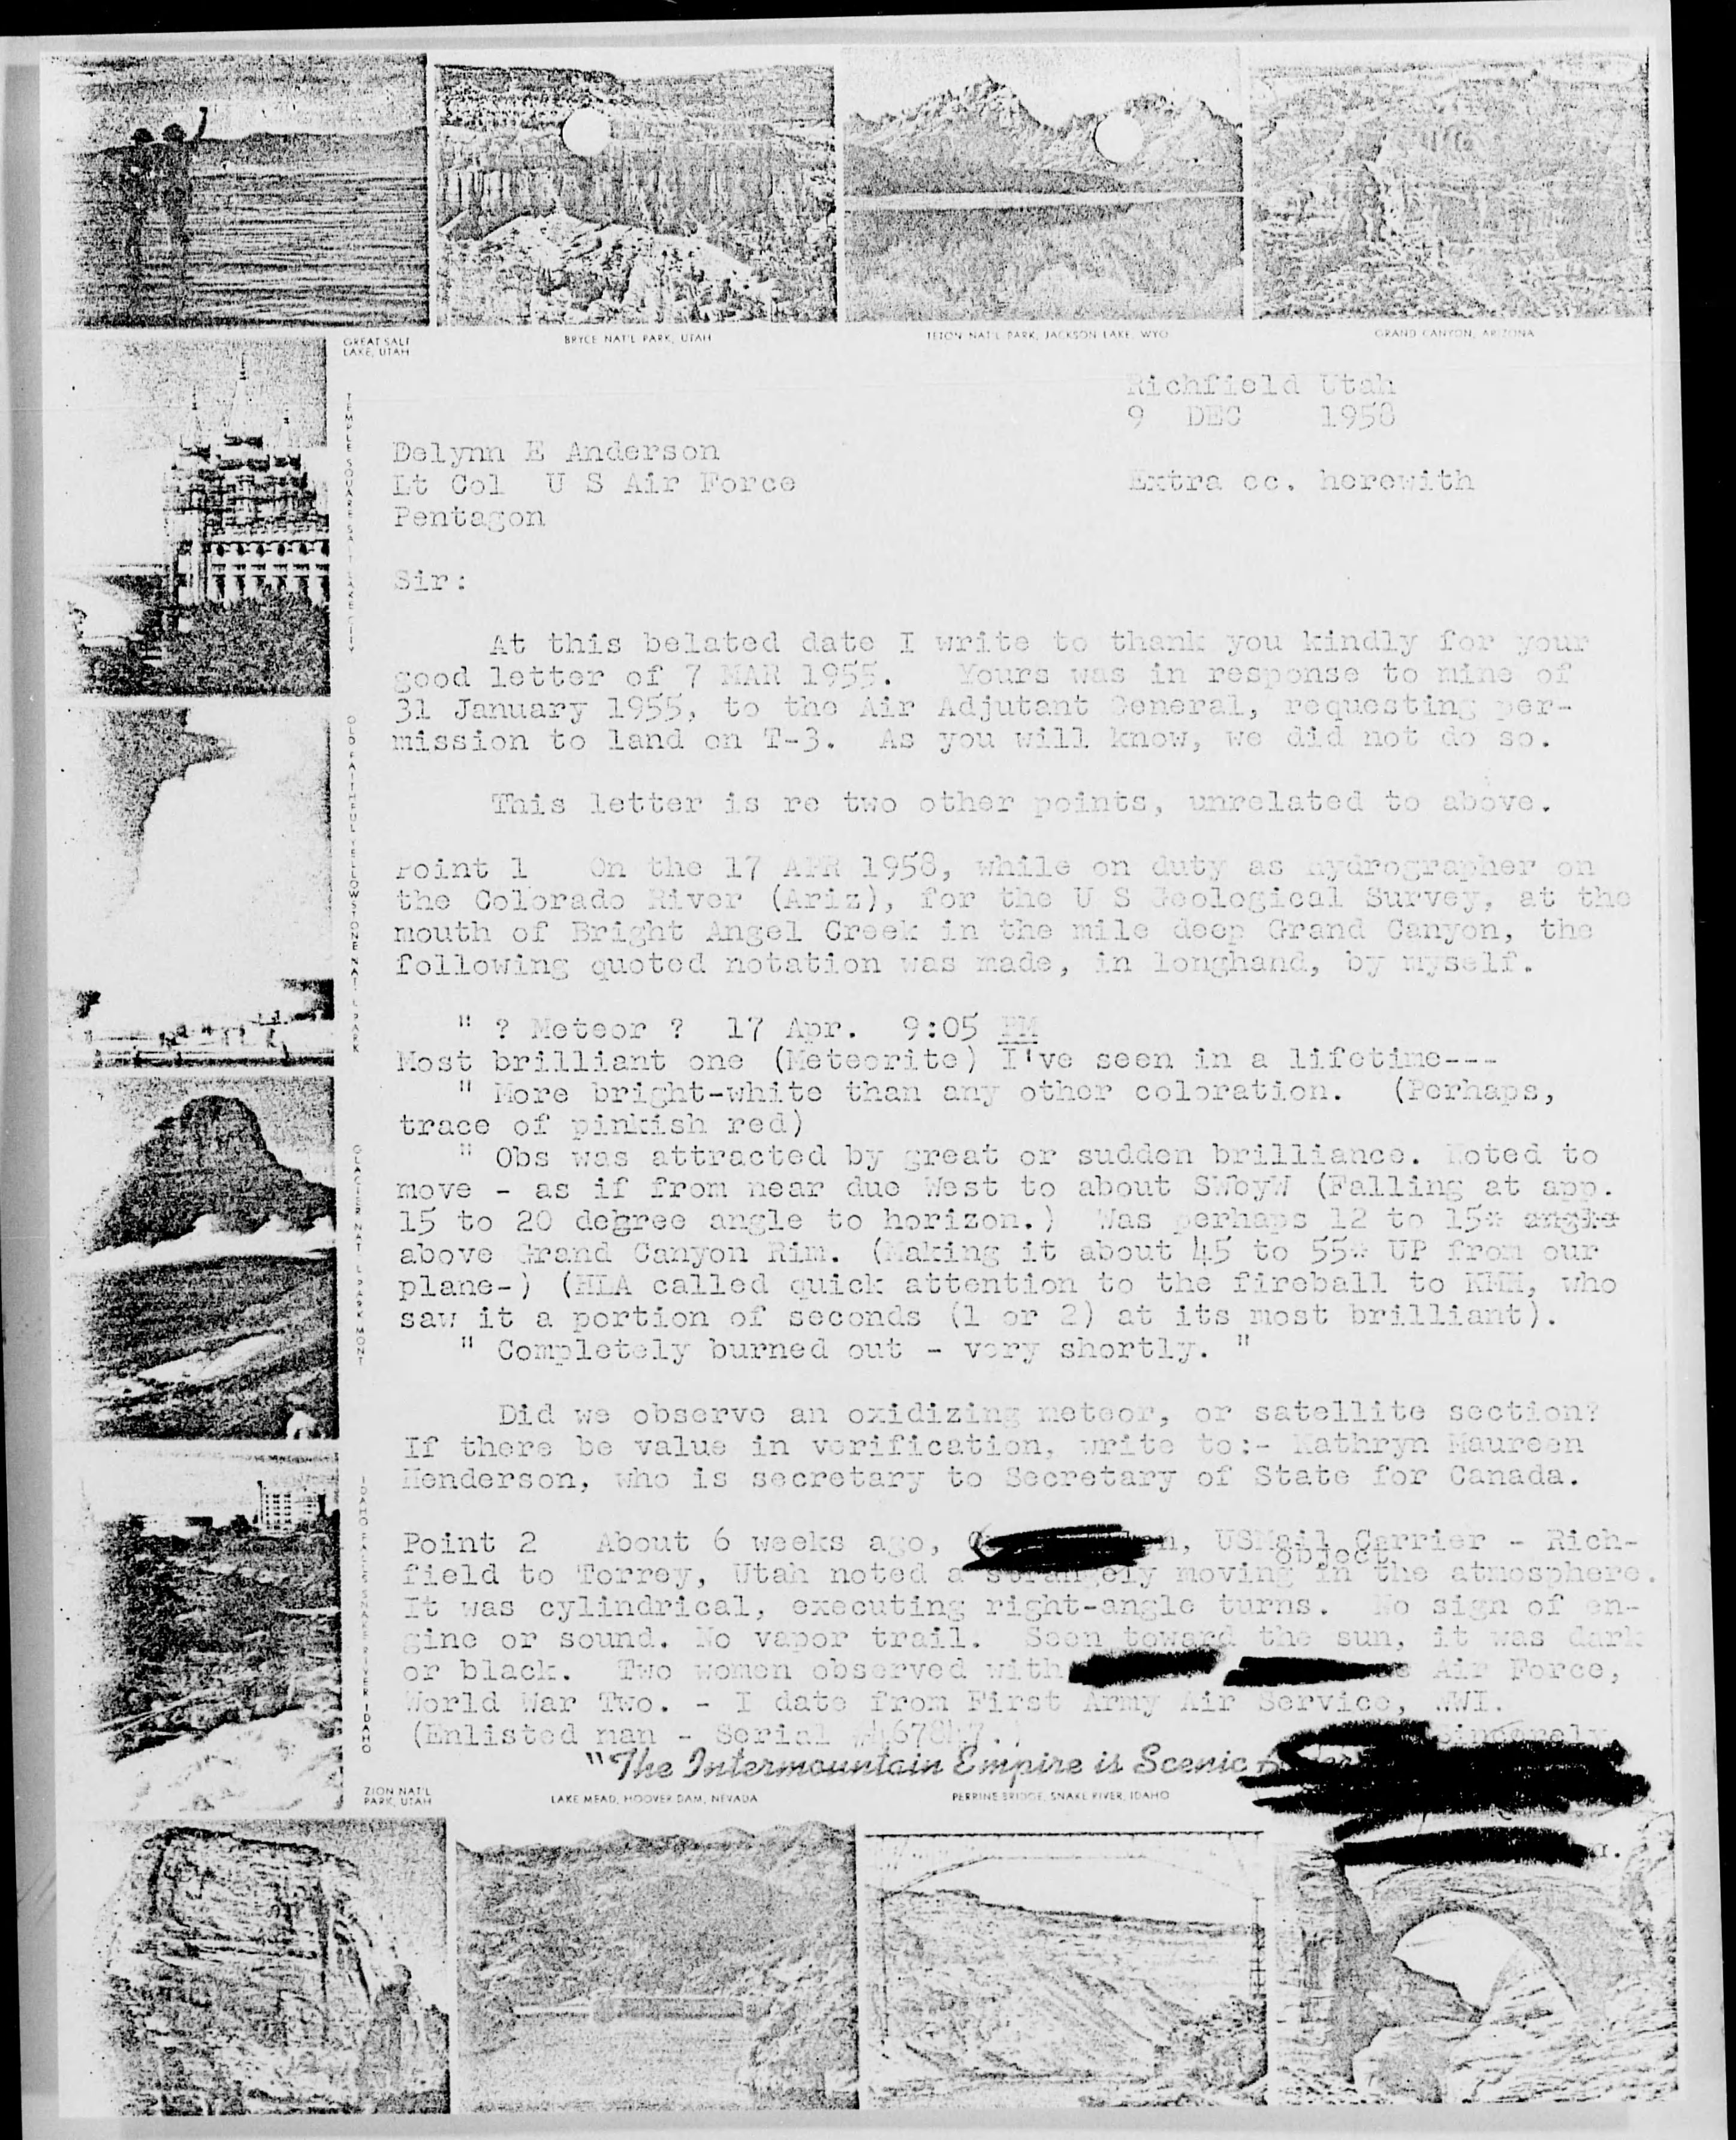 GREAT SALT
LAKE, UTAH
BRYCE NAT'L PARK, UTAH
TETON NAT'L PARK, JACKSON LAKE, WYO
GRAND CANYON, ARIZONA
TEMPLE SQUARE SALT LAKE CITY
OLD FAITHFUL YELLOWSTONE NAT'L PARK
GLACIER NAT'L PARK MONT
IDAHO FALLS SNAKE RIVER IDAHO
Richfield Utah
9 DEC 1958
Delynn E Anderson
Lt Col U S Air Force
Extra cc. herewith
Pentagon
Sir:
At this belated date I write to thank you kindly for your
good letter of 7 MAR 1955. Yours was in response to mine of
31 January 1955, to the Air Adjutant General, requesting per-
mission to land on T-3. As you will know, we did not do so.
This letter is re two other points, unrelated to above.
Point 1 On the 17 APR 1958, while on duty as hydrographer on
the Colorado River (Ariz), for the U S Geological Survey, at the
mouth of Bright Angel Creek in the mile deep Grand Canyon, the
following quoted notation was made, in longhand, by myself.
" ? Meteor ? 17 Apr. 9:05 PM
Most brilliant one (Meteorite) I've seen in a lifetime---
" More bright-white than any other coloration. (Perhaps,
trace of pinkish red)
" Obs was attracted by great or sudden brilliance. Noted to
move - as if from near due West to about SWbyW (Falling at app.
15 to 20 degree angle to horizon.) Was perhaps 12 to 15* angle
above Grand Canyon Rim. (Making it about 45 to 55* UP from our
plane-) (HLA called quick attention to the fireball to KMH, who
saw it a portion of seconds (1 or 2) at its most brilliant).
" Completely burned out - very shortly. "
Did we observe an oxidizing meteor, or satellite section?
If there be value in verification, write to:- Kathryn Maureen
Henderson, who is secretary to Secretary of State for Canada.
Point 2 About 6 weeks ago, USMail Carrier - Rich-
object
field to Torrey, Utah noted a strangely moving in the atmosphere.
It was cylindrical, executing right-angle turns. No sign of en-
gine or sound. No vapor trail. Seen toward the sun, it was dark
or black. Two women observed with Air Force,
World War Two. - I date from First Army Air Service, WWI.
(Enlisted man - Serial
Sincerely,
"The Intermountain Empire is Scenic
ZION NAT'L
PARK, UTAH
LAKE MEAD, HOOVER DAM, NEVADA
PERRINE BRIDGE, SNAKE RIVER, IDAHO